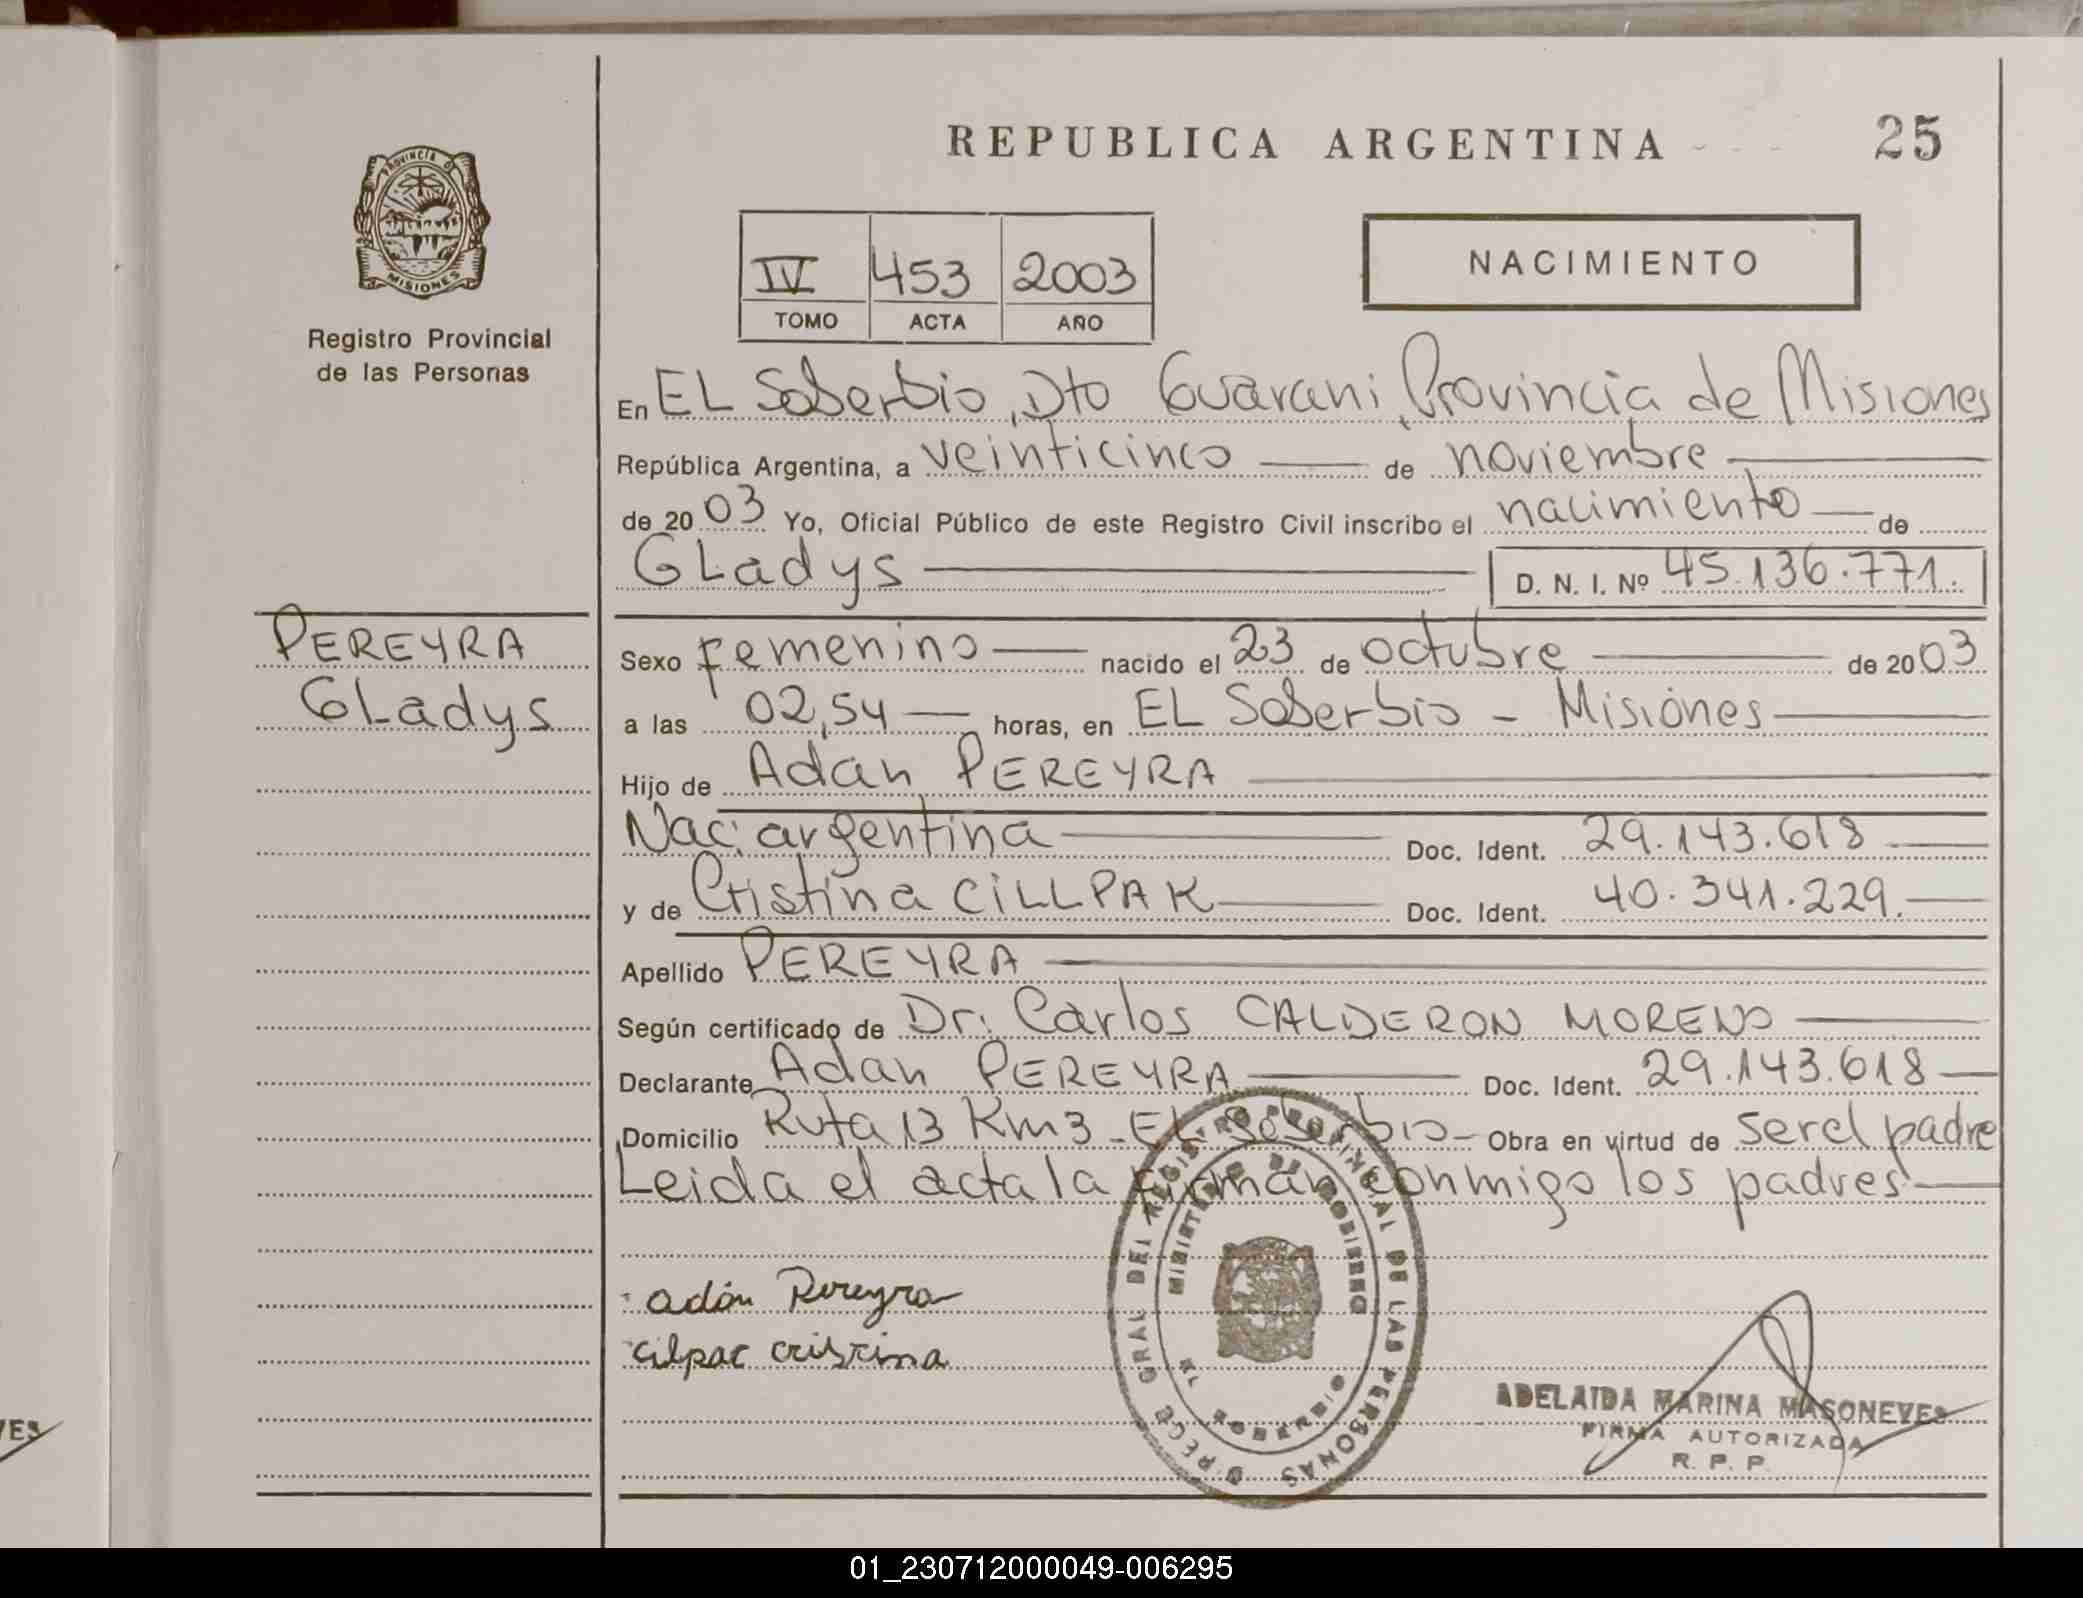 REPUBLICA ARGENTINA
25
PROVINCIA DE
MISIONES
Registro Provincial
de las Personas
IV 453 2003
TOMO ACTA AÑO
NACIMIENTO
En EL Soberbio, Dto Guarani, Provincia de Misiones
República Argentina, a veinticinco de noviembre
de 2003 Yo, Oficial Público de este Registro Civil inscribo el nacimiento de
GLadys D. N. I. Nº 45.136.771.
PEREYRA
GLadys
Sexo femenino nacido el 23 de octubre de 2003
a las 02,54 horas, en EL Soberbio - Misiones
Hijo de Adan PEREYRA
Nac: argentina Doc. Ident. 29.143.618
y de Cristina CiLLPAK Doc. Ident. 40.341.229.
Apellido PEREYRA
Según certificado de Dr. Carlos CALDERON MORENO
Declarante Adan PEREYRA Doc. Ident. 29.143.618
Domicilio Ruta 13 Km 3 - EL Soberbio - Obra en virtud de ser el padre
Leida el acta la firman conmigo los padres
adán Pereyra
cilpac cristina
DIRECC GRAL DEL REGISTRO PROVINCIAL DE LAS PERSONAS
MINISTERIO DE GOBIERNO
EL SOBERBIO
ADELAIDA MARINA MASONEVES
FIRMA AUTORIZADA
R. P. P.
VES
01_230712000049-006295